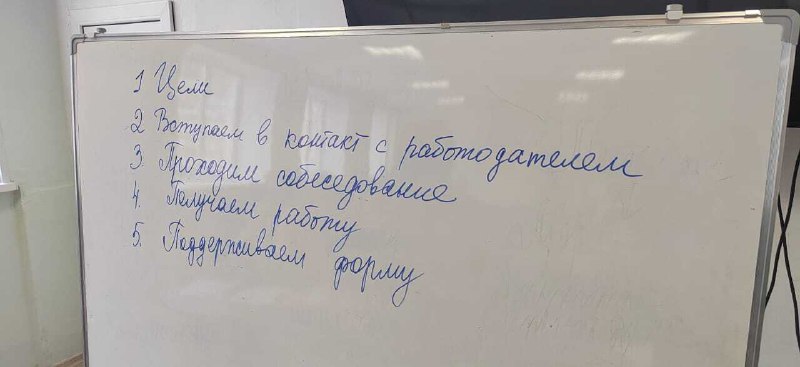 1 Цели
2 Вступаем в контакт с работодателем
3. Проходим собеседование
4. Получаем работу
5. Поддерживаем форму